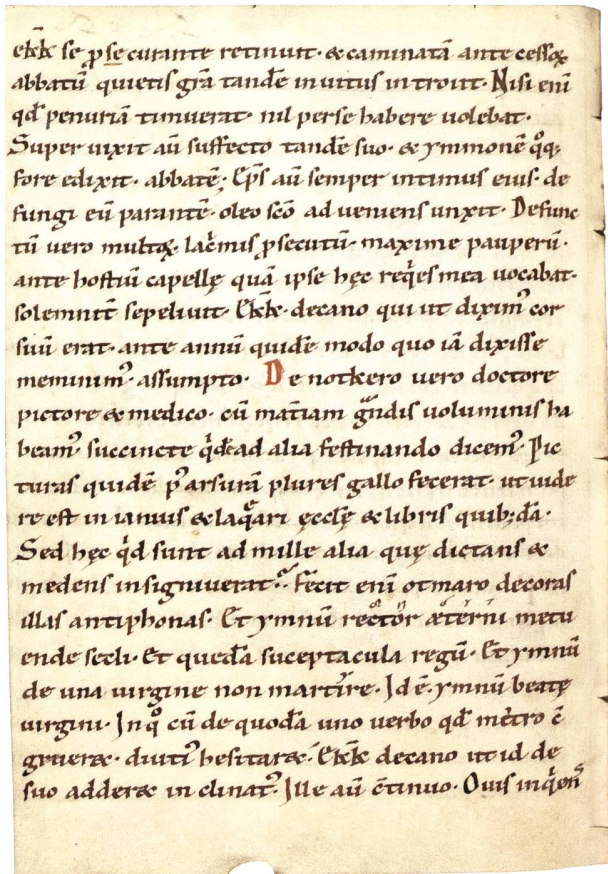 ekk̄ se ꝓ se curante retinuit· & caminatā ante cessoꝝ
abbatū quietis grā tandē inuitus introiit· Nisi enī
qđ penuriā timuerat· nil per se habere uolebat·
Superuixit aū suffecto tandē suo· & ymmonē q̊q;
fore edixit· abbatē; Ep̄s aū semper intimus eius· de
fungi eū parantē· oleo scō adueniens unxit· Defunc
tū vero multoꝝ· lac̄mis ꝓsecutū· maxime pauperū·
ante hostiū capellę quā ipse hęc req̇es mea uocabat·
solemnit̄ sepeliuit· Ekk̄· decano qui ut dixim᷒ cor
suū erat· ante annū quidē modo quo iā dixisse
meminim᷒· assumpto· De notkero vero doctore
pictore & medico· cū mat̄iam gͣndis uoluminis ha
beam᷒· succincte q̇dē ad alia festinando dicem᷒· Pic
turas quidē p᷒ arsurā plures gallo fecerat· ut uide
re est in ianuis & laqͣari ęcclę & libris quib; dā·
Sed hęc q̇d sunt ad mille alia quę dictans &
medens insigniuerat· Fecit enī otmaro decoras
illas antiphonas· Et ymnū rector ęterni metu
ende secli· Et quedā suceptacula regū· Et ymnū
de una uirgine non martire· Id ē· ymnū beatę
uirgini· In q̊ cū de quodā uno verbo qđ metro c̄
gruer&· diuti᷒ hesitar&· Ekk̄ decano ut id de
suo adder& inclinat᷒· Ille aū c̄tinuo· Ouis inq̇ens